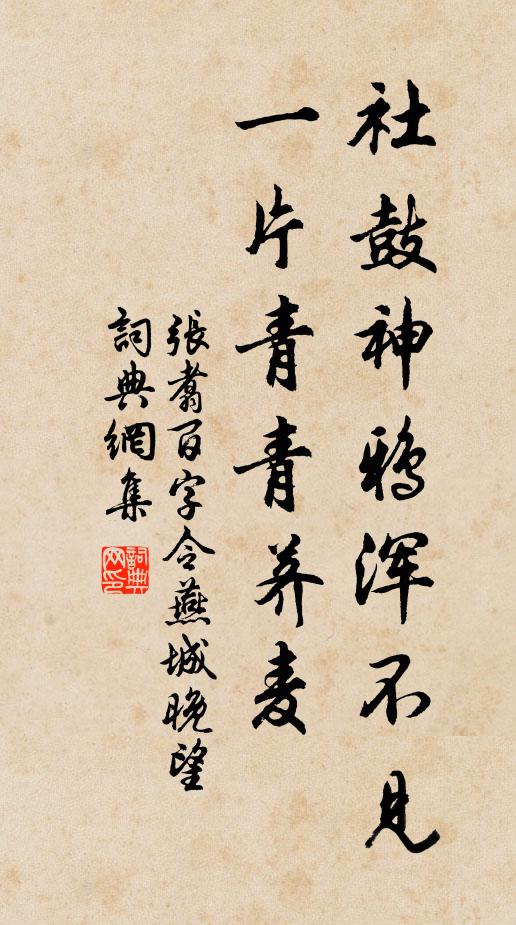 社鼓神鸦浑不见
一片青青荞麦
張翥百字令蕪城晚望
詞典網集
詞典网印